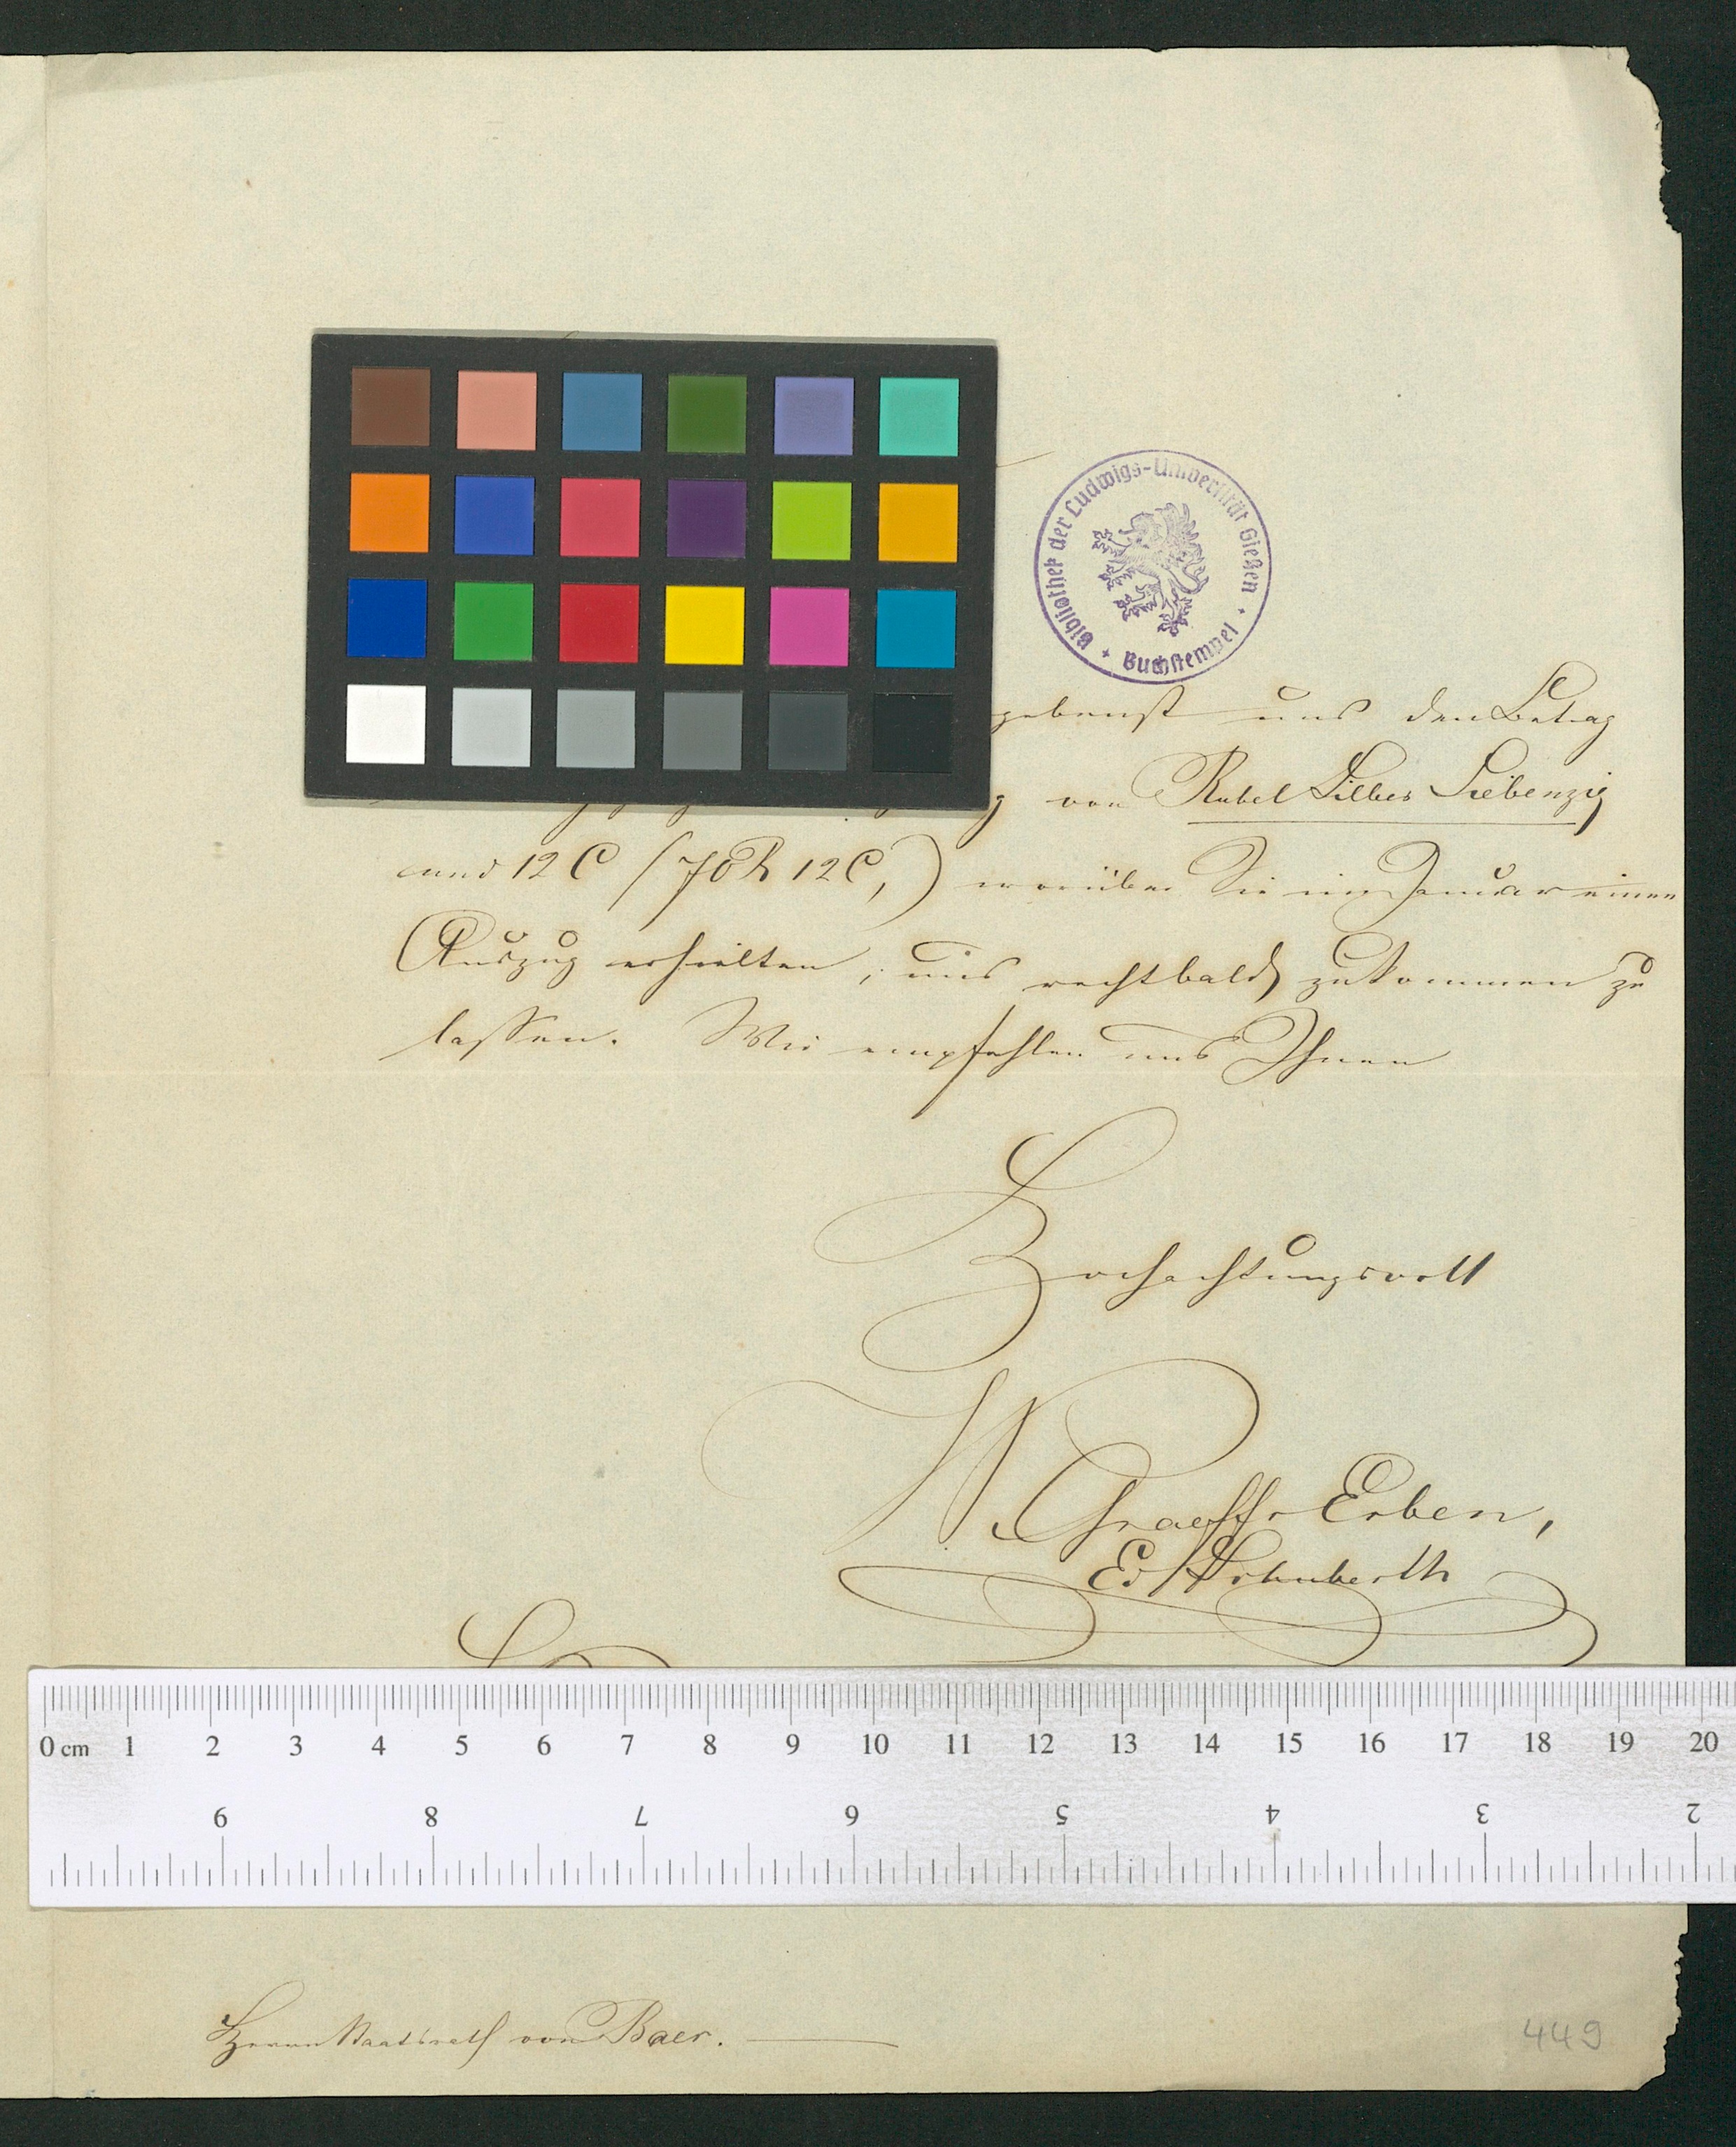 Bibliothek der Ludwigs-Universität Gießen + Buchstempel +
gebenst uns den Betrag
von Rubel Silber Siebenzig
und 12 C (70 R 12 C,) worüber Sie im Januar einen
Auszug erhielten, uns recht bald zukommen zu
lassen. Wir empfehlen uns Ihnen
Hochachtungsvoll
W. Graeffs Erben,
Ed
0 cm 1 2 3 4 5 6 7 8 9 10 11 12 13 14 15 16 17 18 19 20
9 8 7 6 5 4 3 2
Herrn Staatsrath von Baer.
449